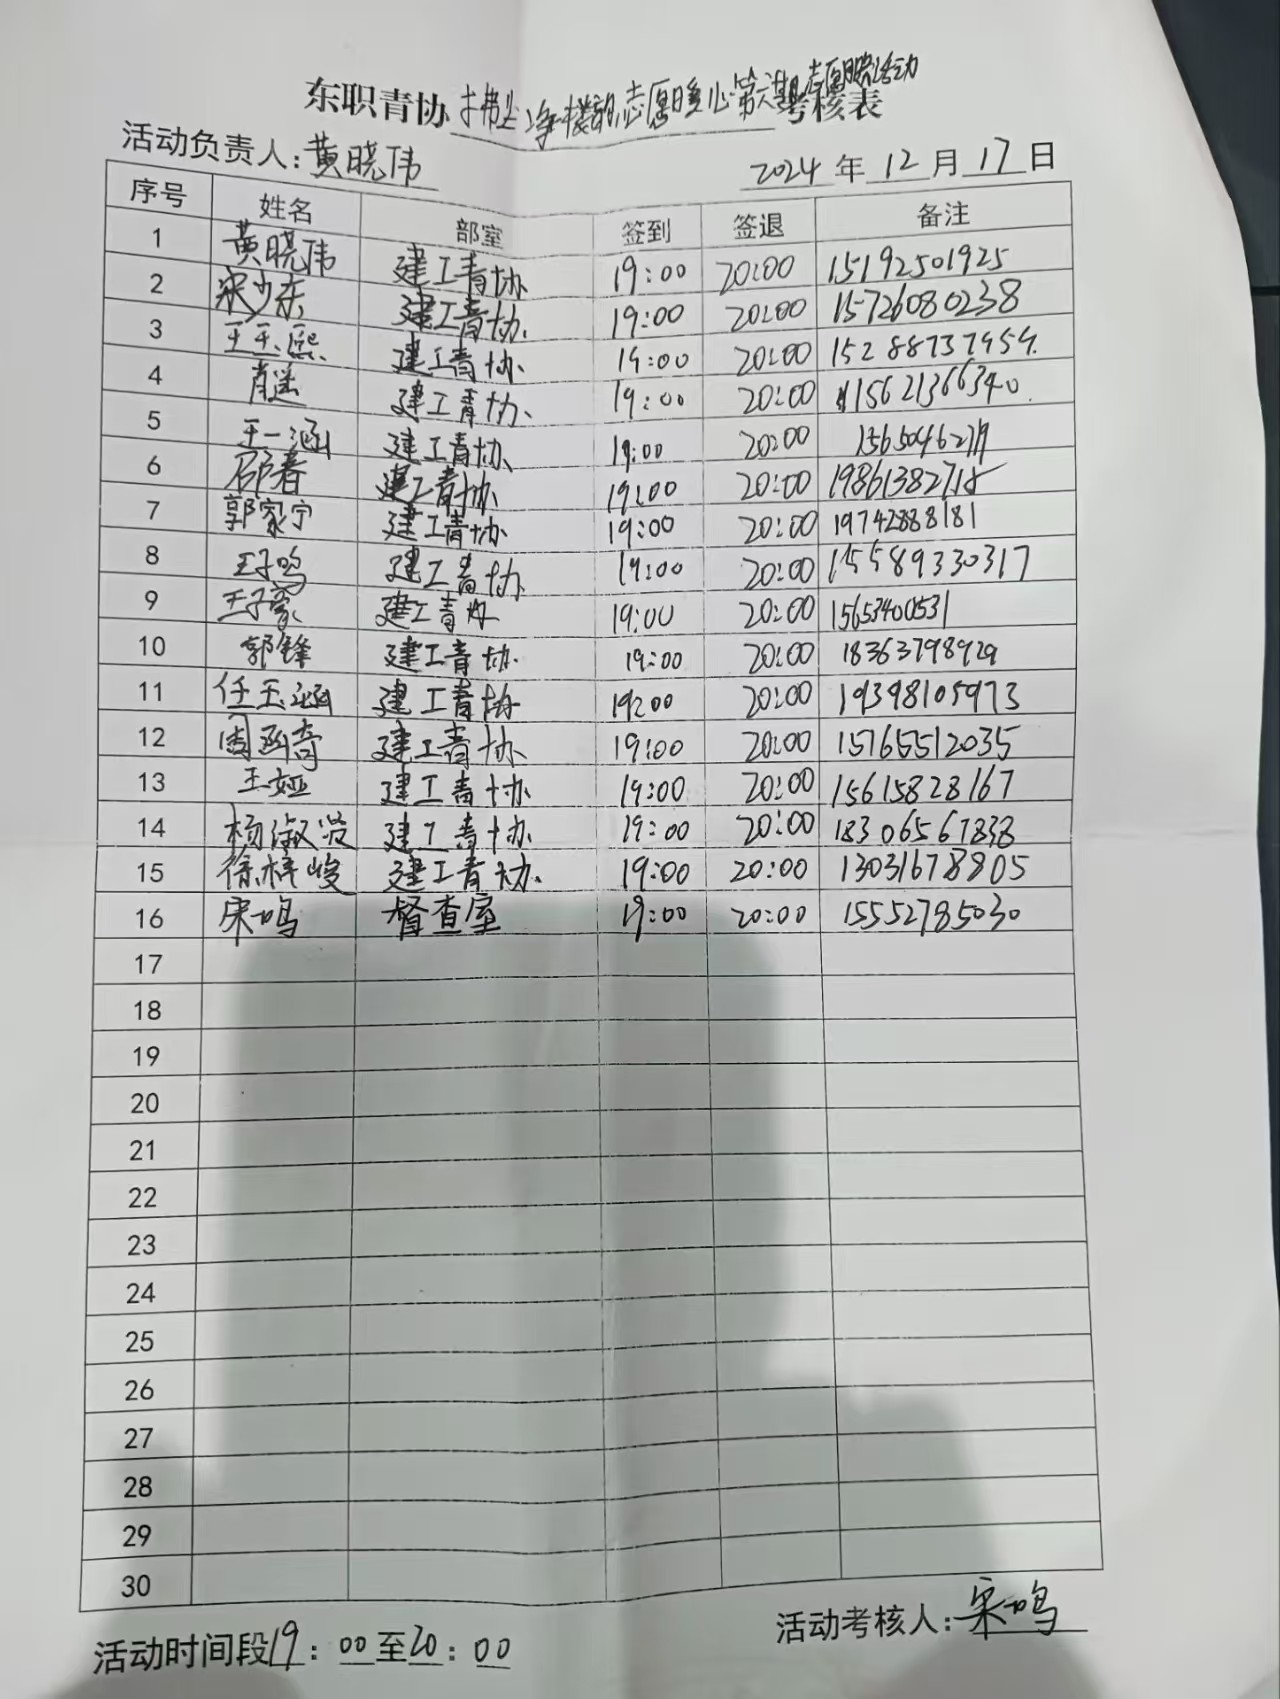 东职青协 拂尘净楼韵,志愿暖心第六期志愿服务活动 考核表
活动负责人:黄晓伟 2024 年 12 月 17 日
序号 姓名 部室 签到 签退 备注
1 黄晓伟 建工青协 19:00 20:00 15192501925
2 宋少东 建工青协 19:00 20:00 15726080238
3 王玉熙 建工青协 19:00 20:00 15288737959
4 肖遥 建工青协 19:00 20:00 15621366340
5 王一涵 建工青协 19:00 20:00
6 邵春 建工青协 19:00 20:00 19861382718
7 郭家宁 建工青协 19:00 20:00 19742888181
8 王子鸣 建工青协 19:00 20:00 155589330317
9 王子豪 建工青协 19:00 20:00 15653400531
10 郭锋 建工青协 19:00 20:00 18363798929
11 任玉涵 建工青协 19:00 20:00 19398105973
12 周函奇 建工青协 19:00 20:00 15765512035
13 王娅 建工青协 19:00 20:00 15615828167
14 杨淑贤 建工青协 19:00 20:00 18306567838
15 徐梓峻 建工青协 19:00 20:00 13031678805
16 宋一鸣 督查室 19:00 20:00 15552785030
17
18
19
20
21
22
23
24
25
26
27
28
29
30
活动时间段19:00至20:00 活动考核人:宋一鸣